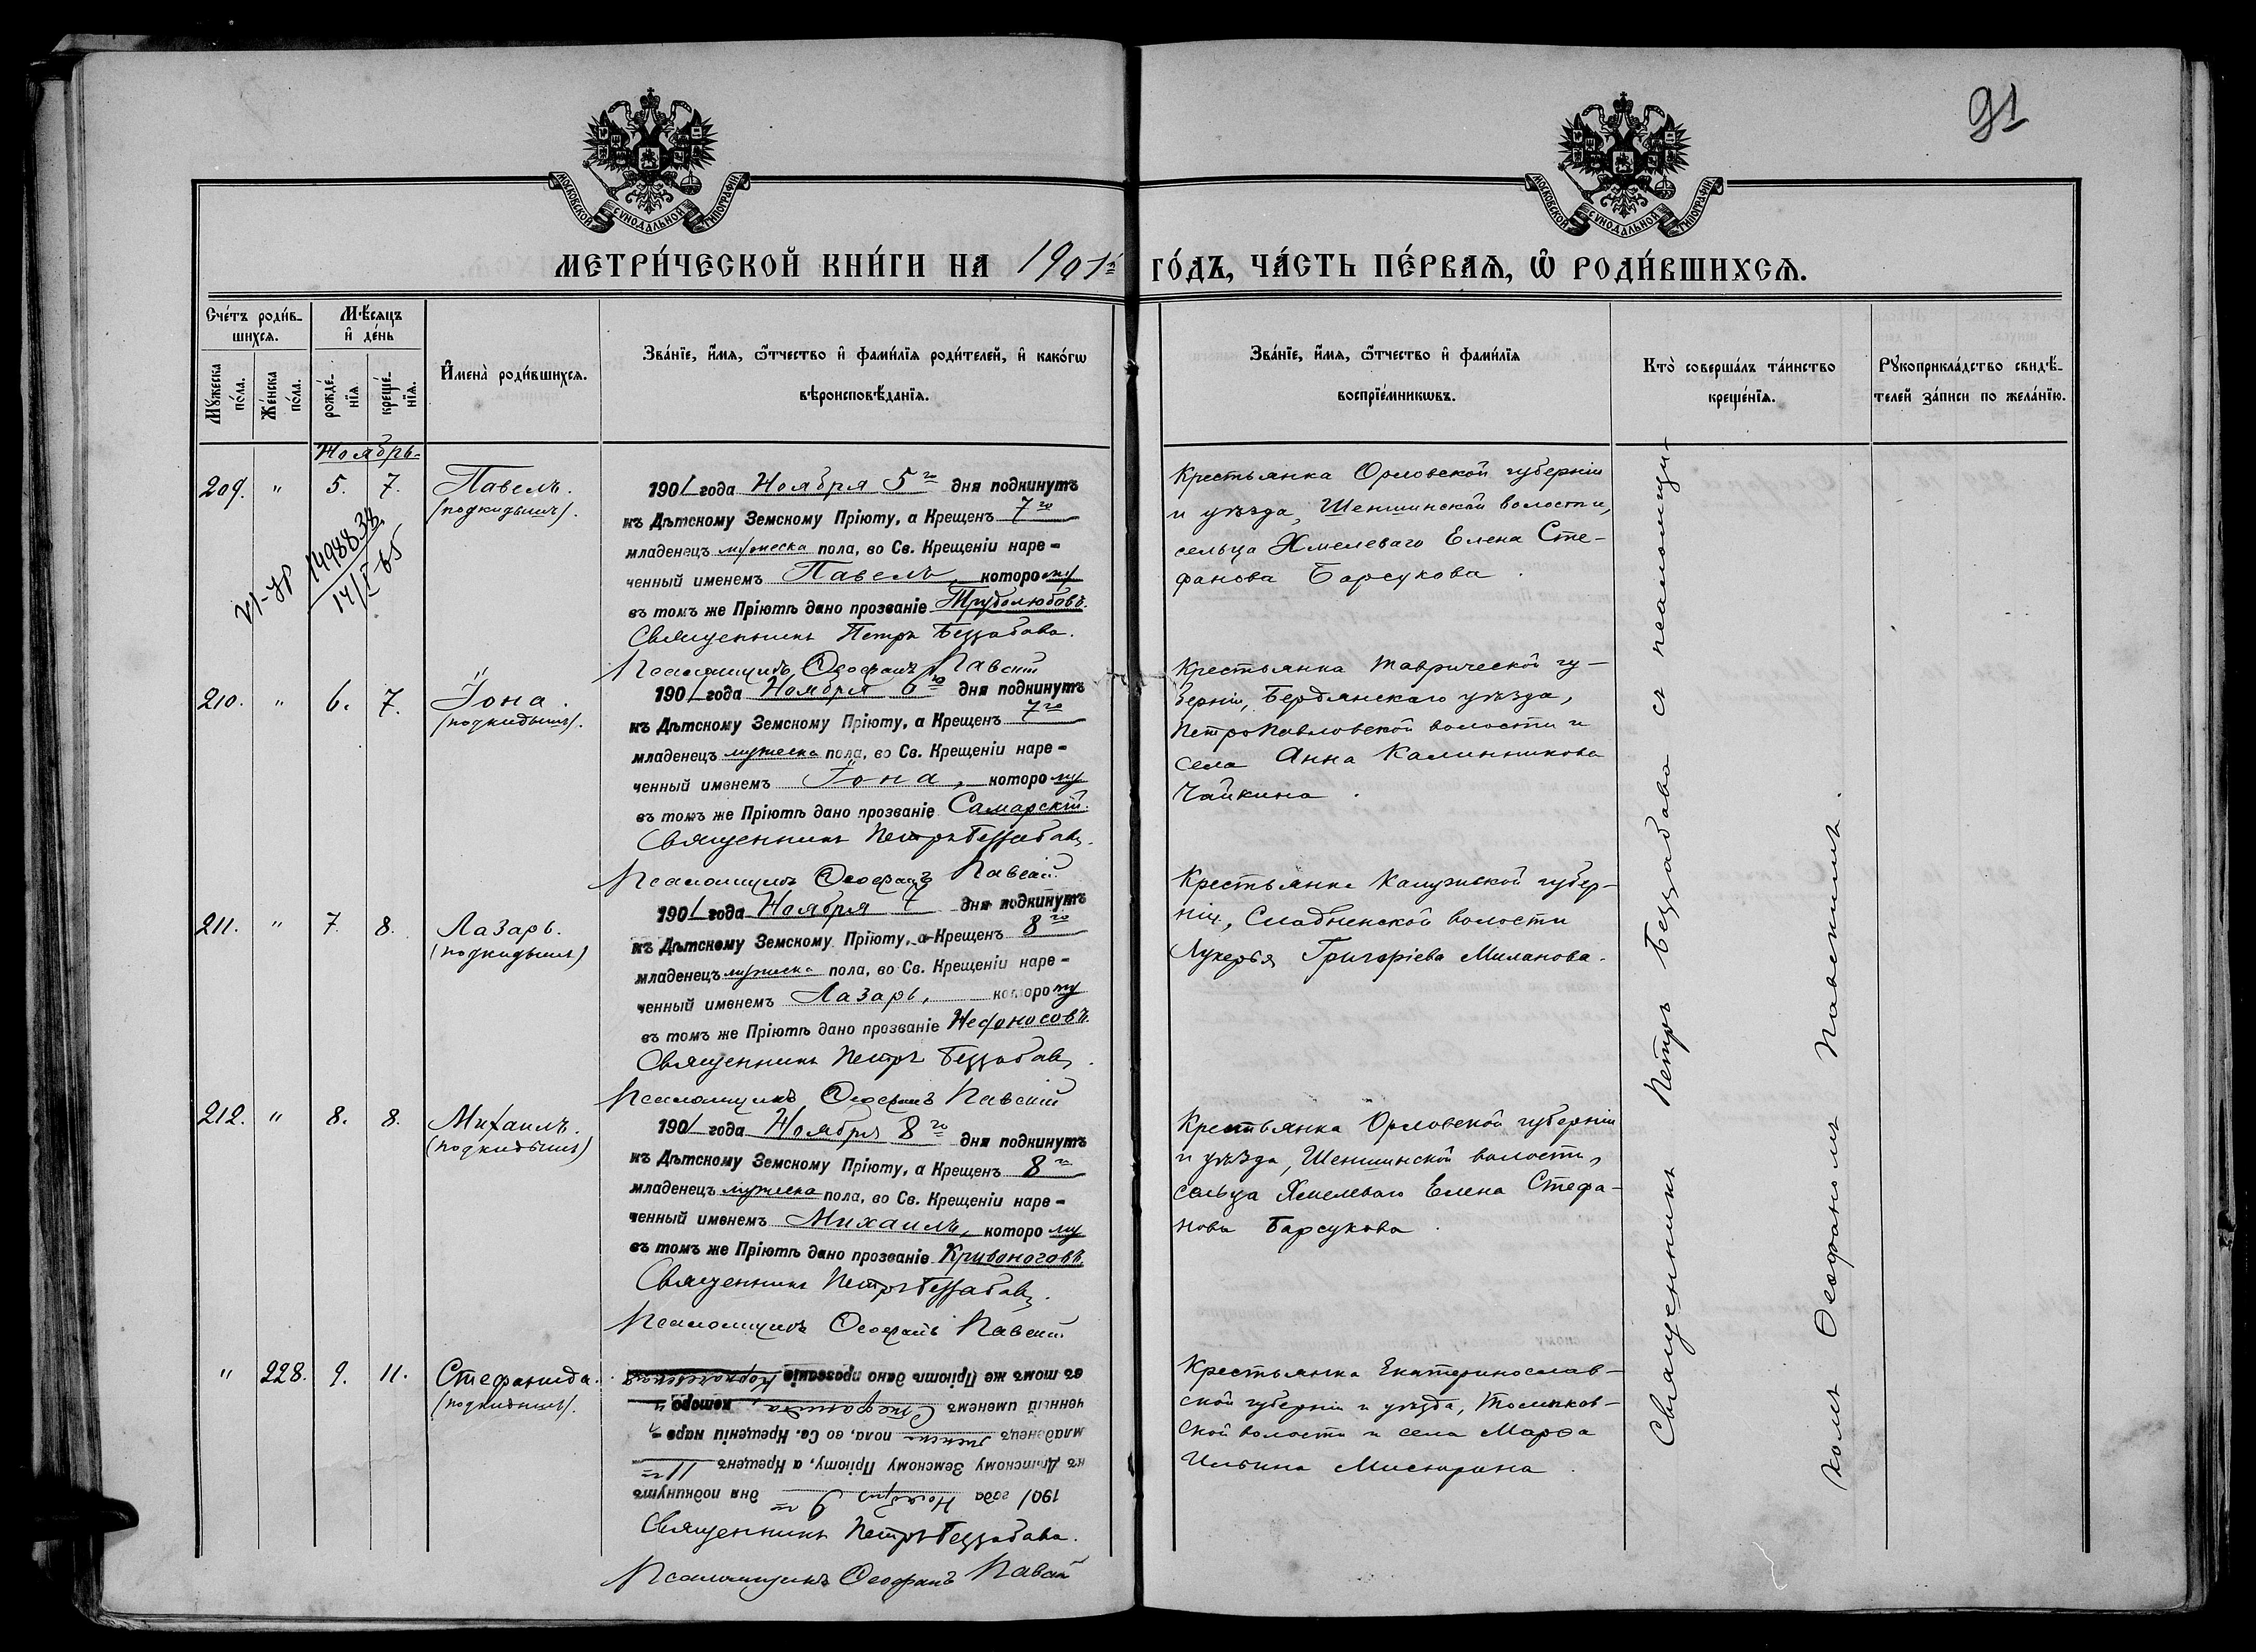 91
МОСКОВСКОЙ СУНОДАЛЬНОЙ ТИПОГРАФІИ
МОСКОВСКОЙ СУНОДАЛЬНОЙ ТИПОГРАФІИ
МЕТРИ́ЧЕСКОЙ КНИ́ГИ НА 1901й ГО́ДЪ, ЧА́СТЬ ПЕ́РВАѦ, Ѡ РОДИ́ВШИХСѦ.
Сче́тъ роди́в-
шихсѧ.
Мѣ́сѧцъ
и де́нь
Мꙋ́жеска
по́ла.
Же́нска
по́ла.
рожде́-
нїѧ
креще́-
нїѧ.
Имена̀ роди́вшихсѧ.
Зва́нїе, и́мѧ, ѻ́тчество и фами́лїѧ роди́телей, и како́гѡ
вѣроисповѣ́данїѧ.
Зва́нїе, и́мѧ, ѻ́тчество и фами́лїѧ
воспрїе́мникѡвъ.
Кто̀ соверша́лъ та́инство
креще́нїѧ.
Рꙋкоприкла́дство свидѣ́-
телей за́писи по жела́нїю.
Ноябрь.
209. " 5. 7. Павелъ.
(подкидышъ).
149883
14/I 65
1901 года Ноября 5го дня подкинутъ
къ Дѣтскому Земскому Пріюту, а Крещенъ 7го
младенецъ мужеска пола, во Св. Крещеніи наре-
ченный именемъ Павелъ, которому
въ томъ же Пріютѣ дано прозваніе Трудолюбовъ.
Священникъ Петръ
Псаломщикъ Ѳеофанъ Павскій
Крестьянка Орловской губерніи
и уѣзда, Шеншинской волости,
сельца Хмелеваго Елена Сте-
фанова Барсукова.
210. " 6. 7. Іона.
(подкидышъ).
1901 года Ноября 6го дня подкинутъ
къ Дѣтскому Земскому Пріюту, а Крещенъ 7го
младенецъ мужеска пола, во Св. Крещеніи наре-
ченный именемъ Іона, которому
въ томъ же Пріютѣ дано прозваніе Самарскій.
Священникъ Петръ
Псаломщикъ Ѳеофанъ Павскій
Крестьянка Таврической гу-
берніи, Бердянскаго уѣзда,
Петропавловской волости и
села Анна Калинникова
Чайкина.
211. " 7. 8. Лазарь.
(подкидышъ)
1901 года Ноября 7 дня подкинутъ
къ Дѣтскому Земскому Пріюту, а Крещенъ 8го
младенецъ мужеска пола, во Св. Крещеніи наре-
ченный именемъ Лазарь, которому
въ томъ же Пріютѣ дано прозваніе
Священникъ Петръ
Псаломщикъ Ѳеофанъ Павскій
Крестьянка Калужской губер-
ніи, волости
Лукерья Григоріева Миланова.
212. " 8. 8. Михаилъ.
(подкидышъ)
1901 года Ноября 8го дня подкинутъ
къ Дѣтскому Земскому Пріюту, а Крещенъ 8го
младенецъ мужеска пола, во Св. Крещеніи наре-
ченный именемъ Михаилъ, которому
въ томъ же Пріютѣ дано прозваніе Кривоноговъ.
Священникъ Петръ
Псаломщикъ Ѳеофанъ Павскій
Крестьянка Орловской губерніи
и уѣзда, Шеншинской волости,
сельца Хмелеваго Елена Стефа-
нова Барсукова.
" 228. 9. 11. Стефанида.
(подкидышъ).
1901 года Ноября 9го дня подкинутъ
къ Дѣтскому Земскому Пріюту, а Крещенъ 11го
младенецъ женска пола, во Св. Крещеніи наре-
ченный именемъ Стефанида, которой
въ томъ же Пріютѣ дано прозваніе
Священникъ Петръ
Псаломщикъ Ѳеофанъ Павскій
Крестьянка Екатеринослав-
ской губерніи и уѣзда,
ской волости и села Марѳа
Ильина
Священникъ Петръ съ псаломщи-
комъ Ѳеофаномъ Павскимъ.